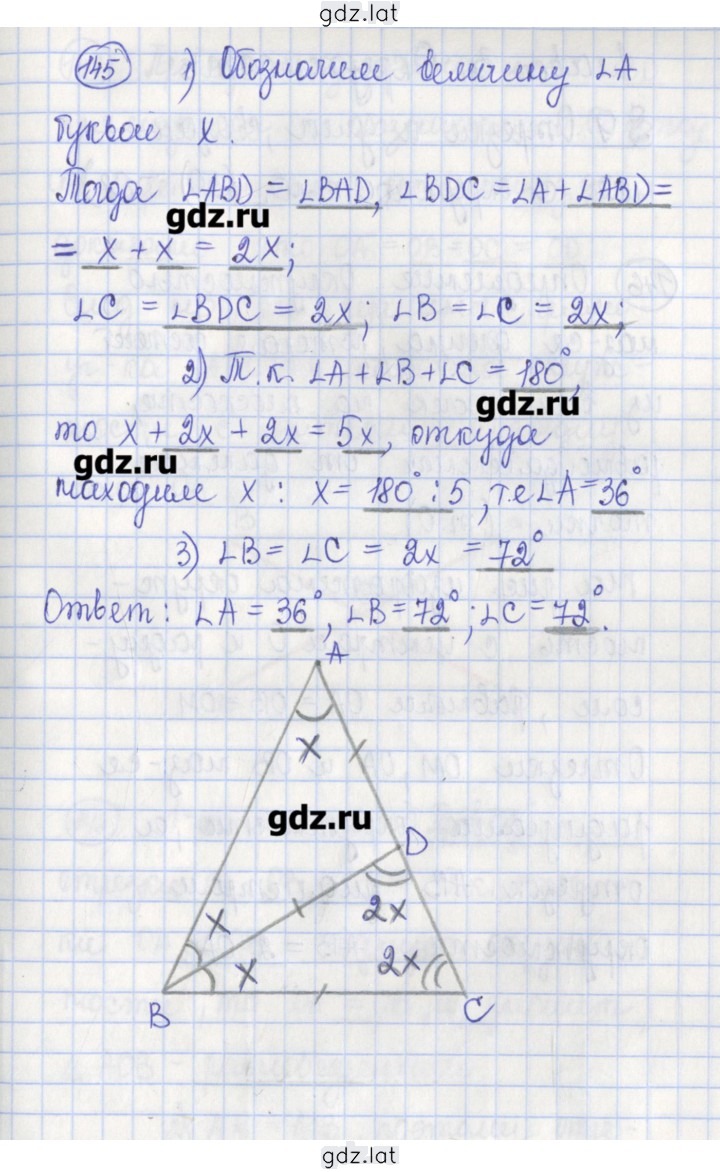 gdz.lat
145 1) Обозначим величину ∠A
буквой x.
Тогда ∠ABD = ∠BAD, ∠BDC = ∠A + ∠ABD =
gdz.ru
= x + x = 2x;
∠C = ∠BDC = 2x; ∠B = ∠C = 2x;
2) Т.к. ∠A + ∠B + ∠C = 180°,
gdz.ru
то x + 2x + 2x = 5x, откуда
gdz.ru
находим x: x = 180° : 5, т.е ∠A = 36°
3) ∠B = ∠C = 2x = 72°
Ответ: ∠A = 36°, ∠B = 72°; ∠C = 72°.
A
x
gdz.ru
D
x 2x
x 2x
B C
gdz.lat